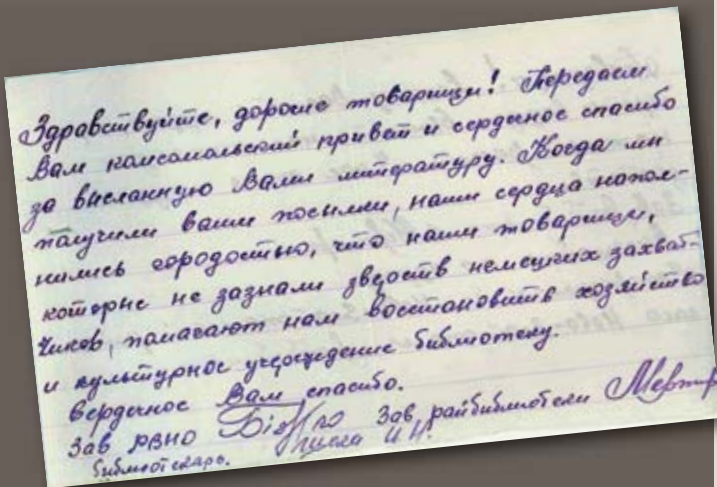 Здравствуйте, дорогие товарищи! Передаем
Вам комсомольский привет и сердечное спасибо
за высланную Вами литературу. Когда мы
получили ваши посылки, наши сердца напол-
нились гордостью, что наши товарищи,
которые не зазнали зверств немецких захват-
чиков, помагают нам восстановить хозяйство
и культурное учреждение библиотеку.
Сердечное Вам спасибо.
Зав РВНО Зав. райбиблиотеки
библиотекарь. И.Н.